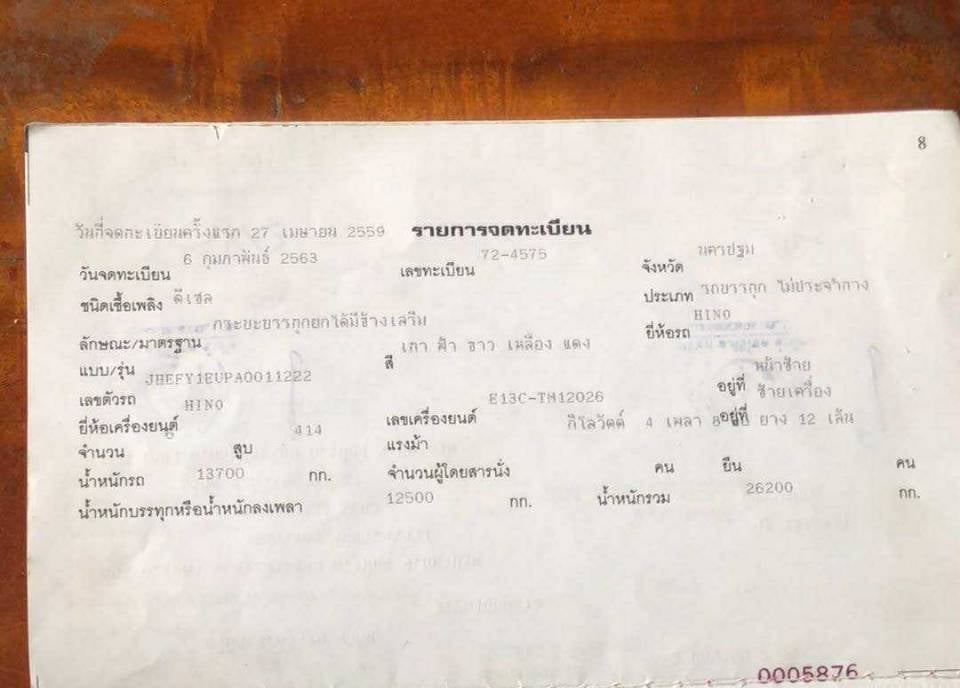 8
วันที่จดทะเบียนครั้งแรก 27 เมษายน 2559 รายการจดทะเบียน
วันจดทะเบียน 6 กุมภาพันธ์ 2563 เลขทะเบียน 72-4575 จังหวัด นครปฐม
ชนิดเชื้อเพลิง ดีเซล ประเภท รถบรรทุก ไม่ประจำทาง
ลักษณะ/มาตรฐาน กระบะบรรทุกยกได้มีข้างเสริม ยี่ห้อรถ HINO
แบบ/รุ่น สี เทา ฟ้า ขาว เหลือง แดง
เลขตัวรถ JHEFY1EUPA0011222 อยู่ที่ หน้าซ้าย
ยี่ห้อเครื่องยนต์ HINO เลขเครื่องยนต์ E13C-TM12026 อยู่ที่ ซ้ายเครื่อง
จำนวน สูบ 414 แรงม้า กิโลวัตต์ 4 เพลา 8 ยาง 12 เส้น
น้ำหนักรถ 13700 กก. จำนวนผู้โดยสารนั่ง คน ยืน คน
น้ำหนักบรรทุกหรือน้ำหนักลงเพลา 12500 กก. น้ำหนักรวม 26200 กก.
0005876